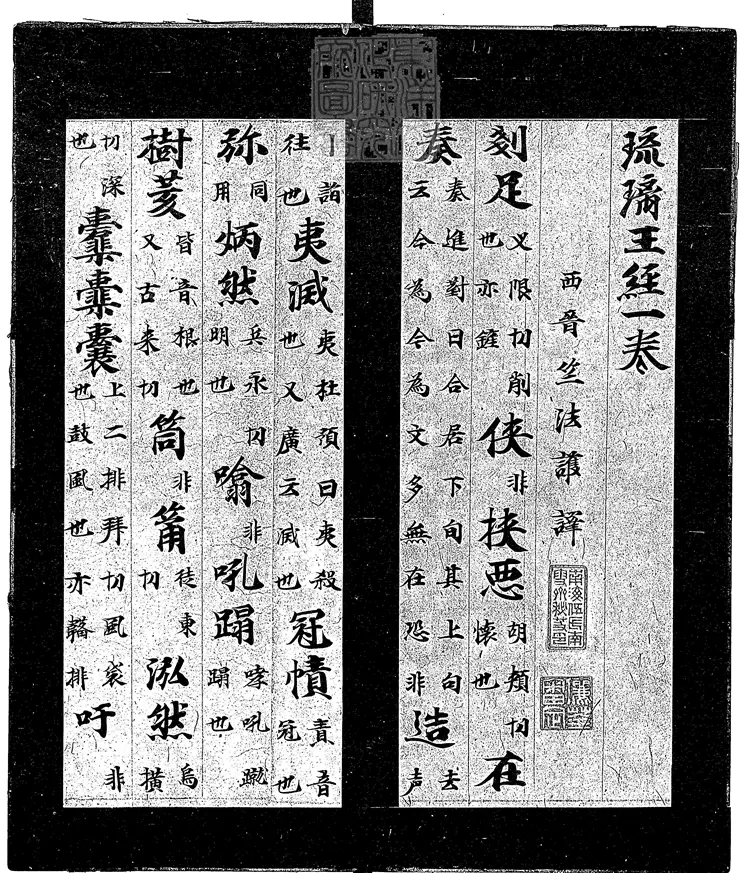 琉璃王經一卷
西晉竺法護譯
剗足义限切削也亦鏟侠非挟悪胡頰切懷也在
奏奏進對曰合居下句其上句云今為令為文多無在恐非造去声
詣往也夷滅夷杜預曰夷殺也又廣云滅也冠幘責音冠也
弥同用炳然兵永切明也噏非吼蹋哮吼蹴蹋也
樹荄皆音根也又古来切筒非筩徒東切泓然烏横
切深也囊上二排拜切風袋也鼓風也亦韛排吁非